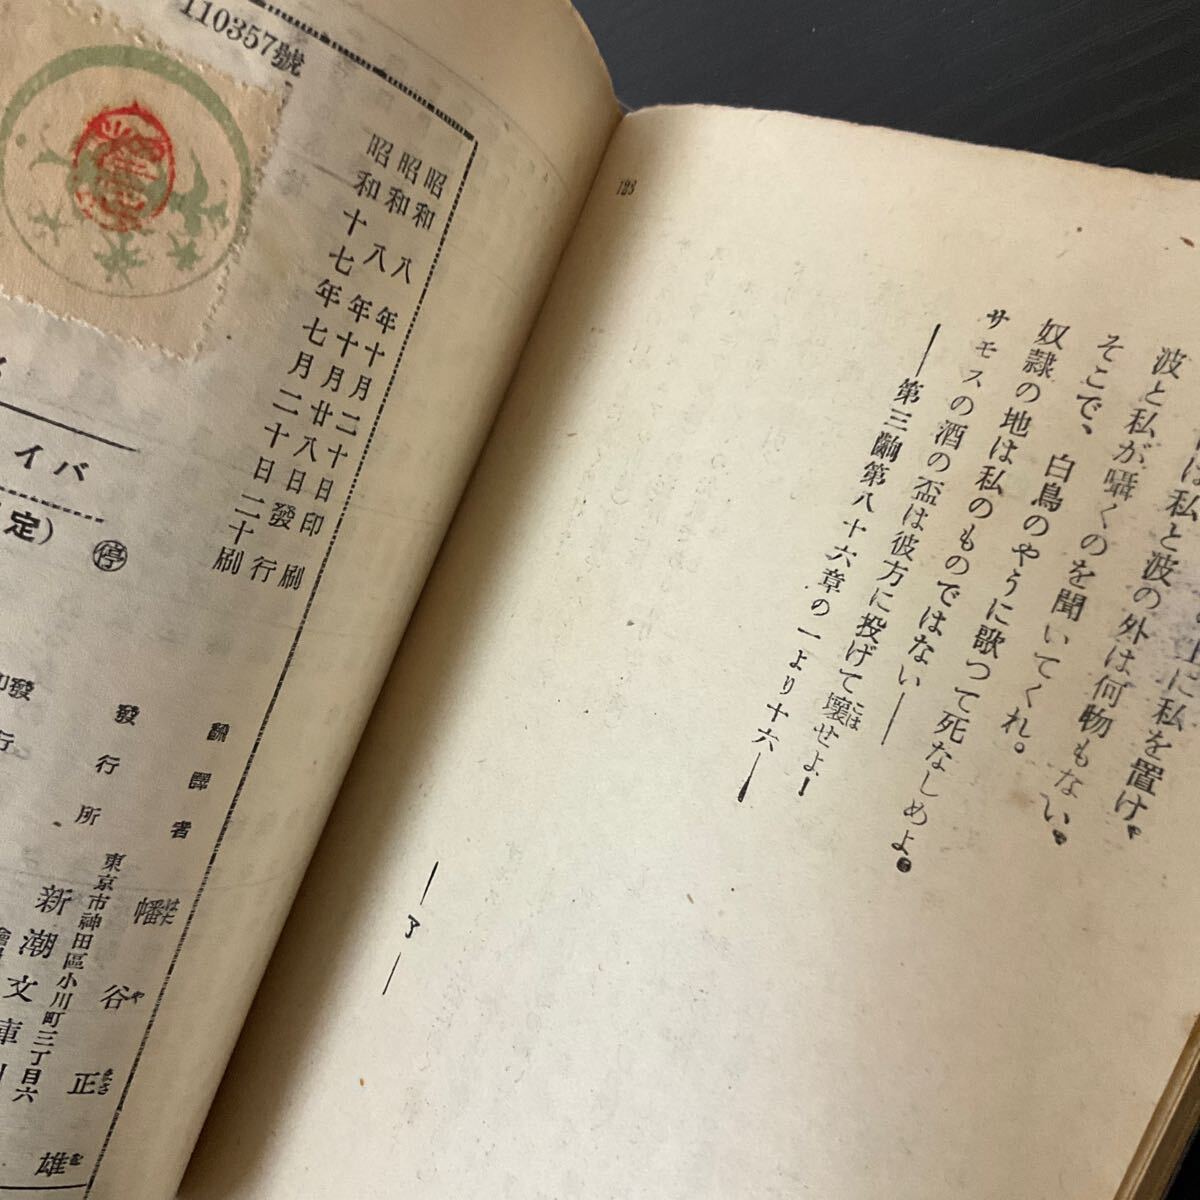 は私と波の外は何物もない。
波と私が囁くのを聞いてくれ。
そこで、白鳥のやうに歌つて死なしめよ。
奴隷の地は私のものではない――
サモスの酒の盃は彼方に投げて壊せよ！
――第三齣第八十六章の一より十六――
―了―
123
110357號
昭和八年十月二十日印刷
昭和八年十月廿八日發行
昭和十七年七月二十日二十刷
バイ
定)
停
飜譯者 幡谷正雄
はたや まさを
發行所
東京市神田區小川町三丁目六
新潮文庫